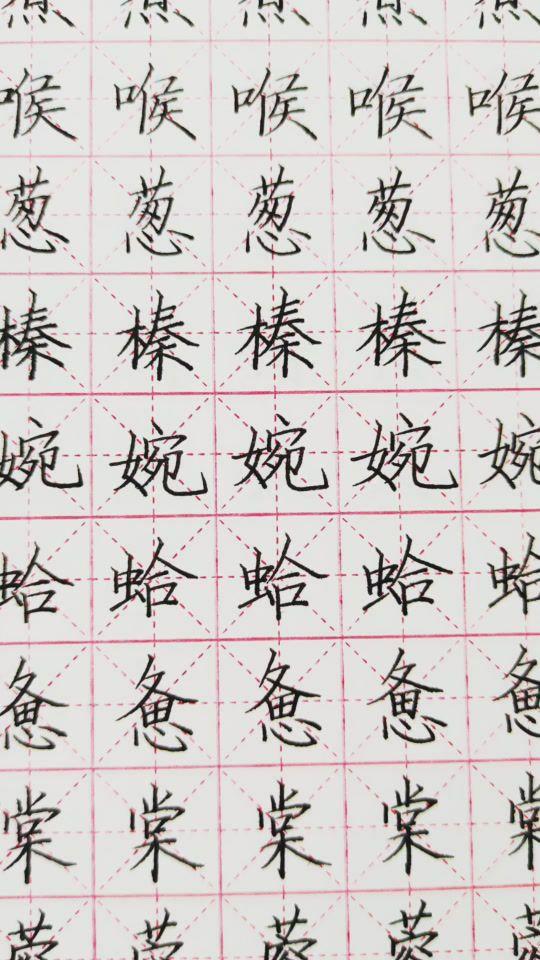 喉 喉 喉 喉 喉
葱 葱 葱 葱 葱
榛 榛 榛 榛 榛
婉 婉 婉 婉 婉
蛤 蛤 蛤 蛤 蛤
惫 惫 惫 惫 惫
棠 棠 棠 棠 棠